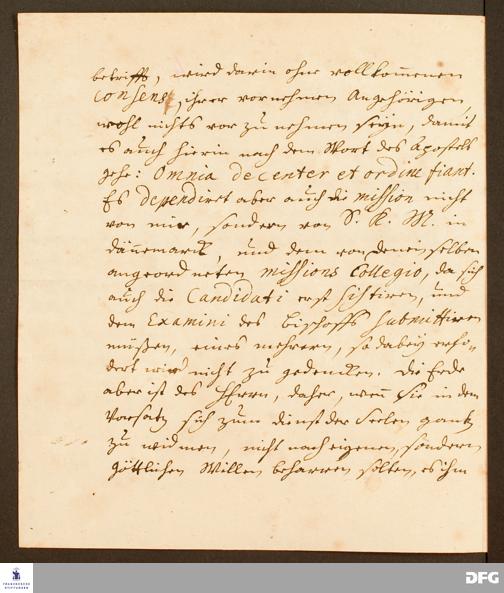 betrifft, wird darin ohne vollkommenen
Consens, ihrer vornehmen Angehörigen,
wohl nichts vor zu nehmen seyn, damit
es auch hierin nach dem Wort des Apostels
gehe: Omnia decenter et ordine fiant.
Es dependiret aber auch die mission nicht
von mir, sondern von S. K. M. in
Dännemarck, und dem von denenselben
angeordneten missions Collegio, da sich
auch die Candidati erst sistiren, und
dem Examini des Bischoffs submittiren
müßen, eines mehrern, so dabey erfo-
dert wird nicht zu gedencken. Die Erde
aber ist des HErrn, daher, wenn Sie in dem
Vorsatz sich zum dienst der Seelen gantz
zu widmen, nicht nach eigenen, sondern
göttlichen Willen beharren solten, es ihm
FRANCKESCHE
STIFTUNGEN
DFG